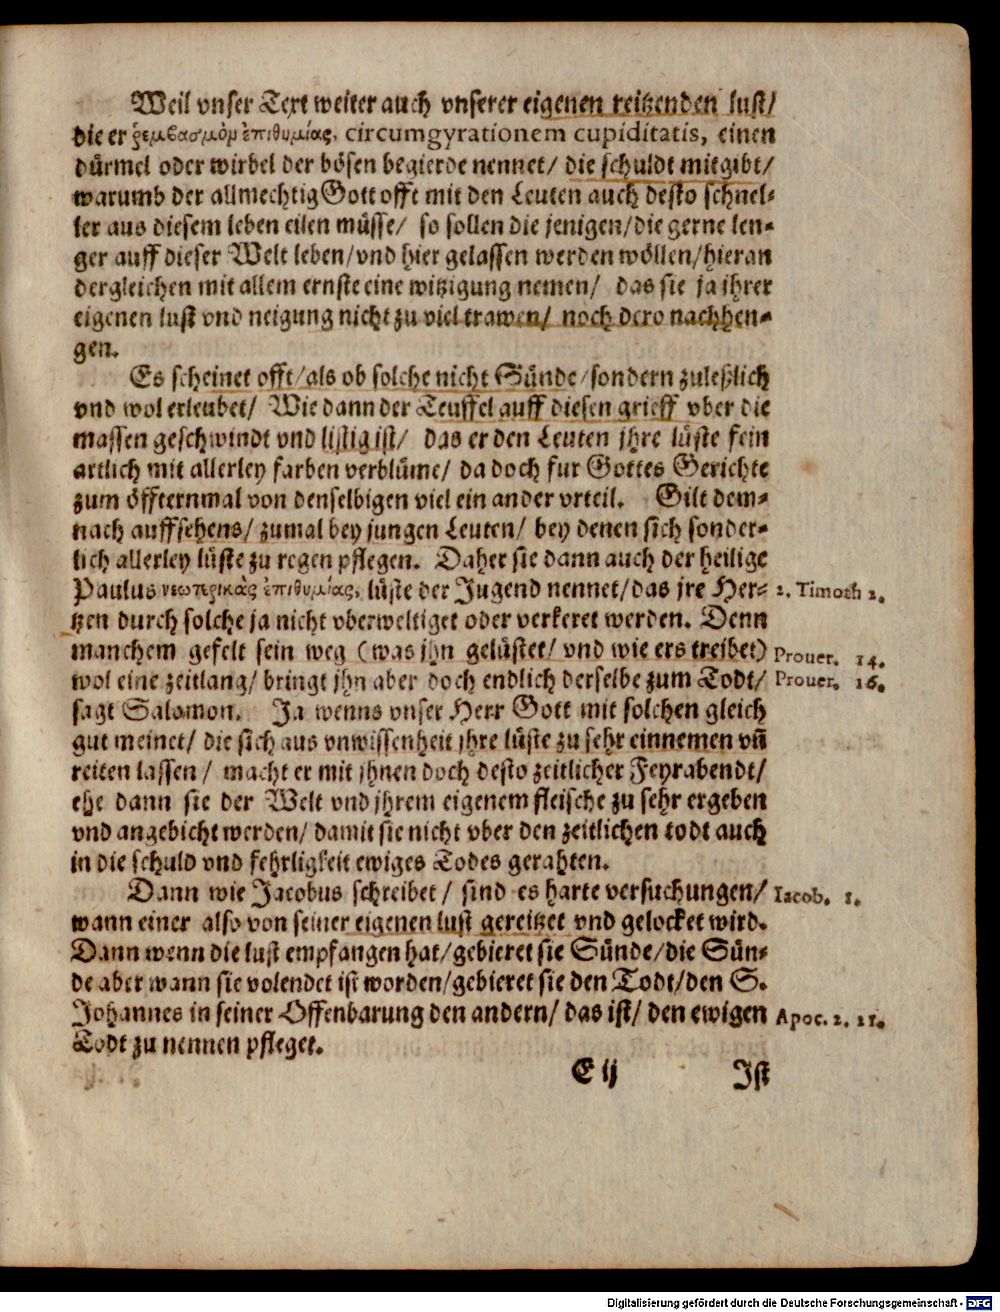 Weil vnser Text weiter auch vnserer eigenen reitzenden lust/
die er ῥεμβασμὸν ἐπιθυμίας, circumgyrationem cupiditatis, einen
dürmel oder wirbel der bösen begierde nennet/ die schuldt mitgibt/
warumb der allmechtig Gott offt mit den Leuten auch desto schnel-
ler aus diesem leben eilen müsse/ so sollen die jenigen/die gerne len-
ger auff dieser Welt leben/vnd hier gelassen werden wöllen/hieran
dergleichen mit allem ernste eine witzigung nemen/ das sie ja jhrer
eigenen lust vnd neigung nicht zu viel trawen/ noch dero nachhen-
gen.
Es scheinet offt/als ob solche nicht Sünde/sondern zuleßlich
vnd wol erleubet/ Wie dann der Teuffel auff diesen grieff vber die
massen geschwindt vnd listig ist/ das er den Leuten jhre lüste fein
artlich mit allerley farben verblüme/ da doch fur Gottes Gerichte
zum öffternmal von denselbigen viel ein ander vrteil. Gilt dem-
nach auffsehens/ zumal bey jungen Leuten/ bey denen sich sonder-
lich allerley lüste zu regen pflegen. Daher sie dann auch der heilige
Paulus νεωτερικὰς ἐπιθυμίας, lüste der Jugend nennet/das jre Her- 2. Timoth 2.
tzen durch solche ja nicht vberweltiget oder verkeret werden. Denn
manchem gefelt sein weg (was jhn gelüstet/ vnd wie ers treibet) Prouer. 14.
wol eine zeitlang/ bringt jhn aber doch endlich derselbe zum Todt/ Prouer. 16.
sagt Salomon. Ja wenns vnser Herr Gott mit solchen gleich
gut meinet/ die sich aus vnwissenheit jhre lüste zu sehr einnemen vñ
reiten lassen/ macht er mit jhnen doch desto zeitlicher Feyrabendt/
ehe dann sie der Welt vnd jhrem eigenem fleische zu sehr ergeben
vnd angebicht werden/ damit sie nicht vber den zeitlichen todt auch
in die schuld vnd fehrligkeit ewiges Todes gerahten.
Dann wie Jacobus schreibet/ sind es harte versuchungen/ Iacob. 1.
wann einer also von seiner eigenen lust gereitzet vnd gelocket wird.
Dann wenn die lust empfangen hat/gebieret sie Sünde/die Sün-
de aber wann sie volendet ist worden/gebieret sie den Todt/den S.
Johannes in seiner Offenbarung den andern/ das ist/ den ewigen Apoc. 2. 21.
Todt zu nennen pfleget.
E ij Ist
Digitalisierung gefördert durch die Deutsche Forschungsgemeinschaft - DFG